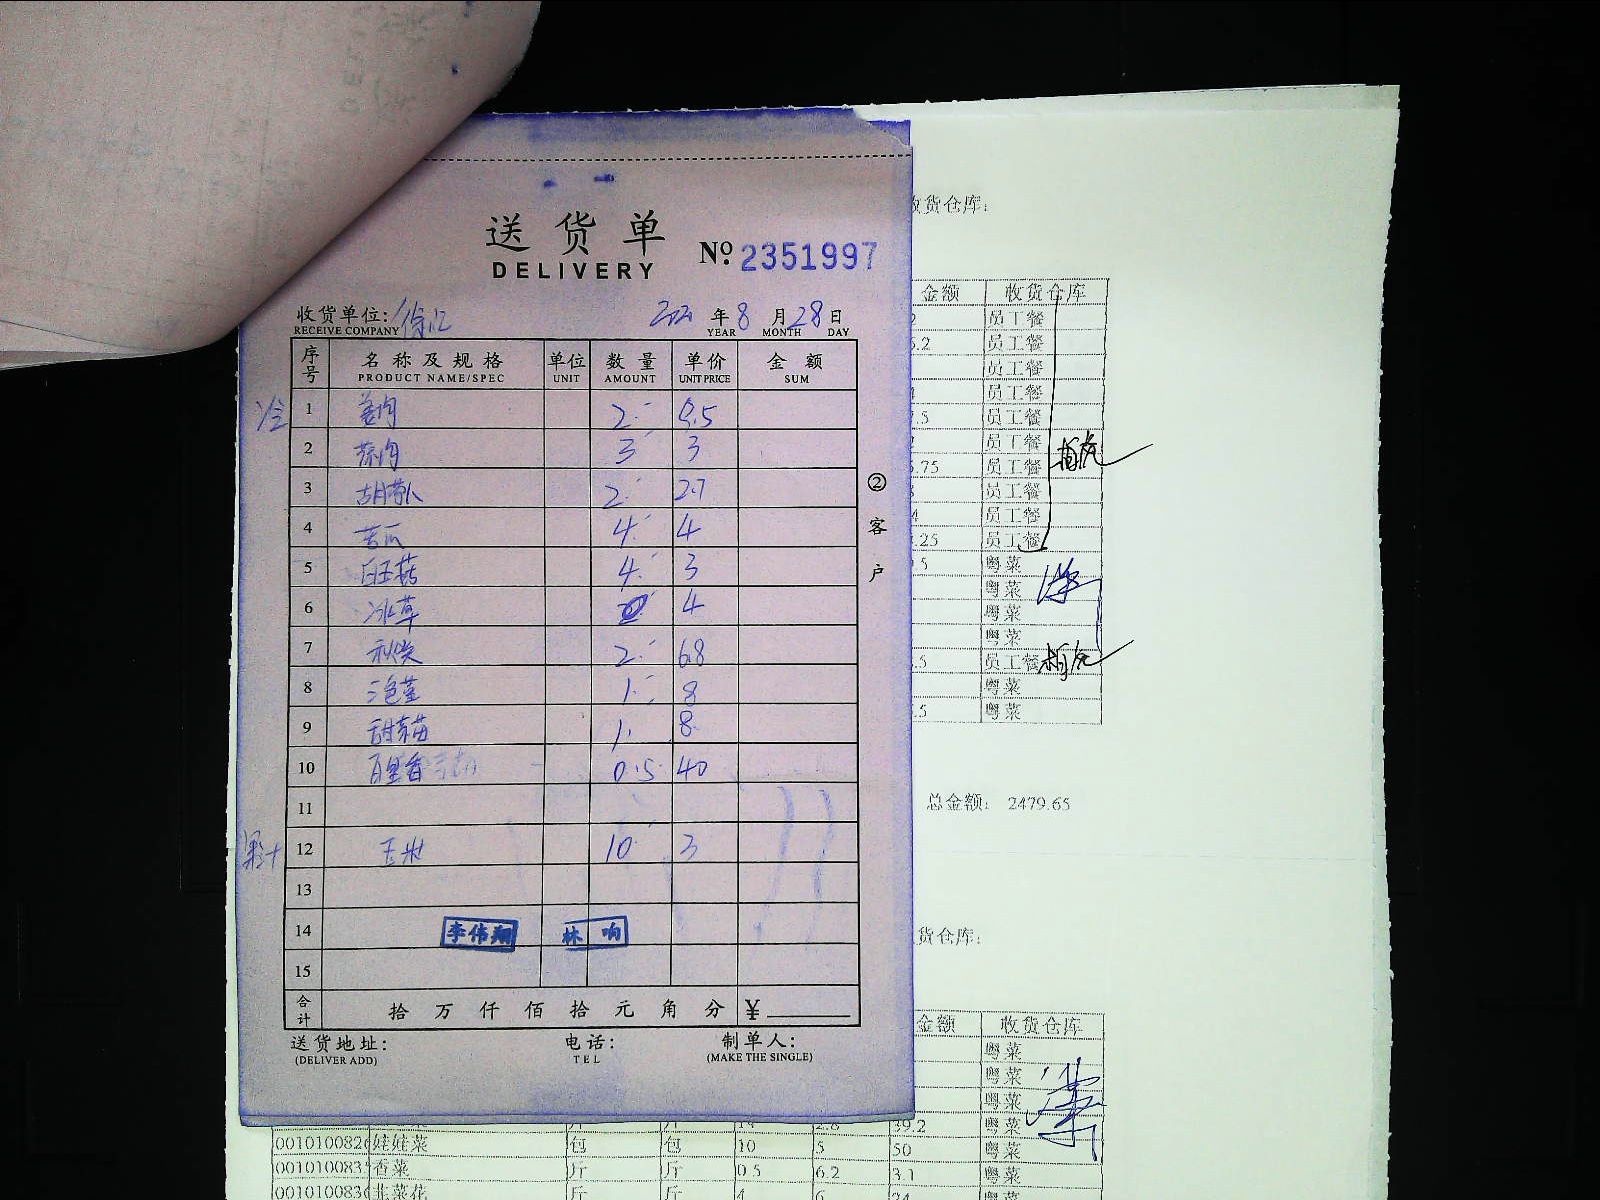 送货单
DELIVERY
№ 2351997
收货单位: 徐汇
RECEIVE COMPANY
年 8 月 28 日
YEAR MONTH DAY
序号 名称及规格 单位 数量 单价 金额
PRODUCT NAME/SPEC UNIT AMOUNT UNIT PRICE SUM
1 姜肉 2 9.5
2 蒜肉 3 3
3 胡萝卜 2 2.7
4 苦瓜 4 4
5 白玉菇 4 3
6 冰草 4
7 秋葵 2 6.8
8 三色堇 1 8
9 甜菜苗 1 8
10 百里香 0.5 40
11
果汁 12 玉米 10 3
13
14 李伟翔 林响
15
合计 拾 万 仟 佰 拾 元 角 分 ¥
送货地址: 电话: 制单人:
(DELIVER ADD) TEL (MAKE THE SINGLE)
②客户
收货仓库:
金额 收货仓库
员工餐
.2 员工餐
员工餐
员工餐
.5 员工餐
员工餐
.75 员工餐
员工餐
员工餐
.25 员工餐
.5 粤菜
粤菜
粤菜
粤菜
.5 员工餐
粤菜
.5 粤菜
总金额: 2479.65
货仓库:
金额 收货仓库
粤菜
粤菜
粤菜
39.2 粤菜
娃娃菜 包 包 10 5 50 粤菜
香菜 斤 斤 0.5 6.2 3.1 粤菜
韭菜花 斤 斤 4 6 24 粤菜